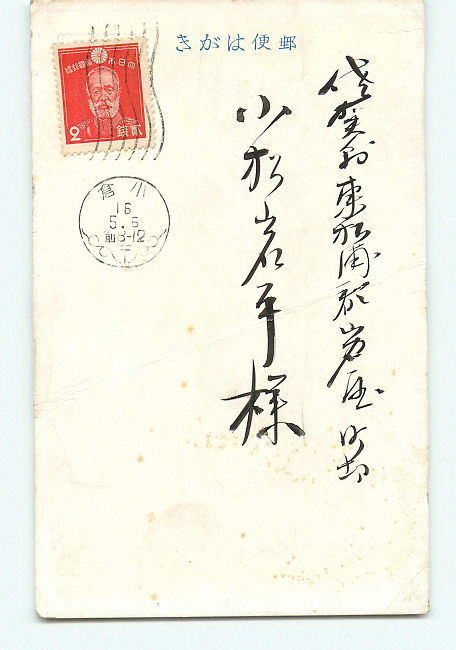 郵便はがき
大日本帝國郵便
2
貳錢
小倉
16
5.6
前8-12
佐賀縣東松浦郡岩屋
小松岩平様